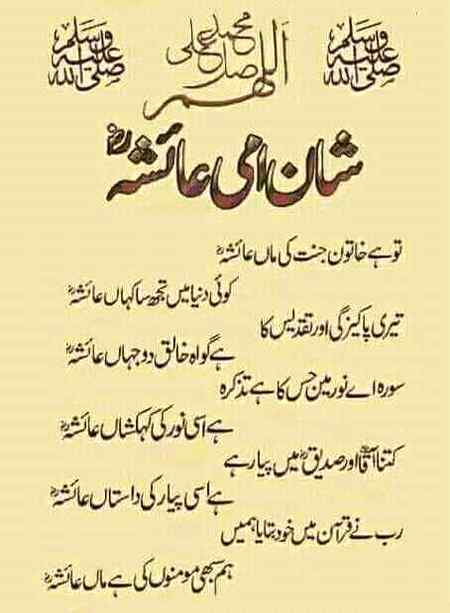 صلى الله عليه وسلم
اللهم صل على محمد
صلى الله عليه وسلم
شان امی عائشہؓ
تو ہے خاتون جنت کی ماں عائشہؓ
کوئی دنیا میں تجھ سا کہاں عائشہؓ
تیری پاکیزگی اور تقدیس کا
ہے گواہ خالق دو جہاں عائشہؓ
سورہ اے نور مین جس کا ہے تذکرہ
ہے اسی نور کی کہکشاں عائشہؓ
کتنا آقاؐ اور صدیقؓ میں پیار ہے
ہے اسی پیار کی داستاں عائشہؓ
رب نے قرآن میں خود بتایا ہمیں
ہم سبھی مومنوں کی ہے ماں عائشہؓ